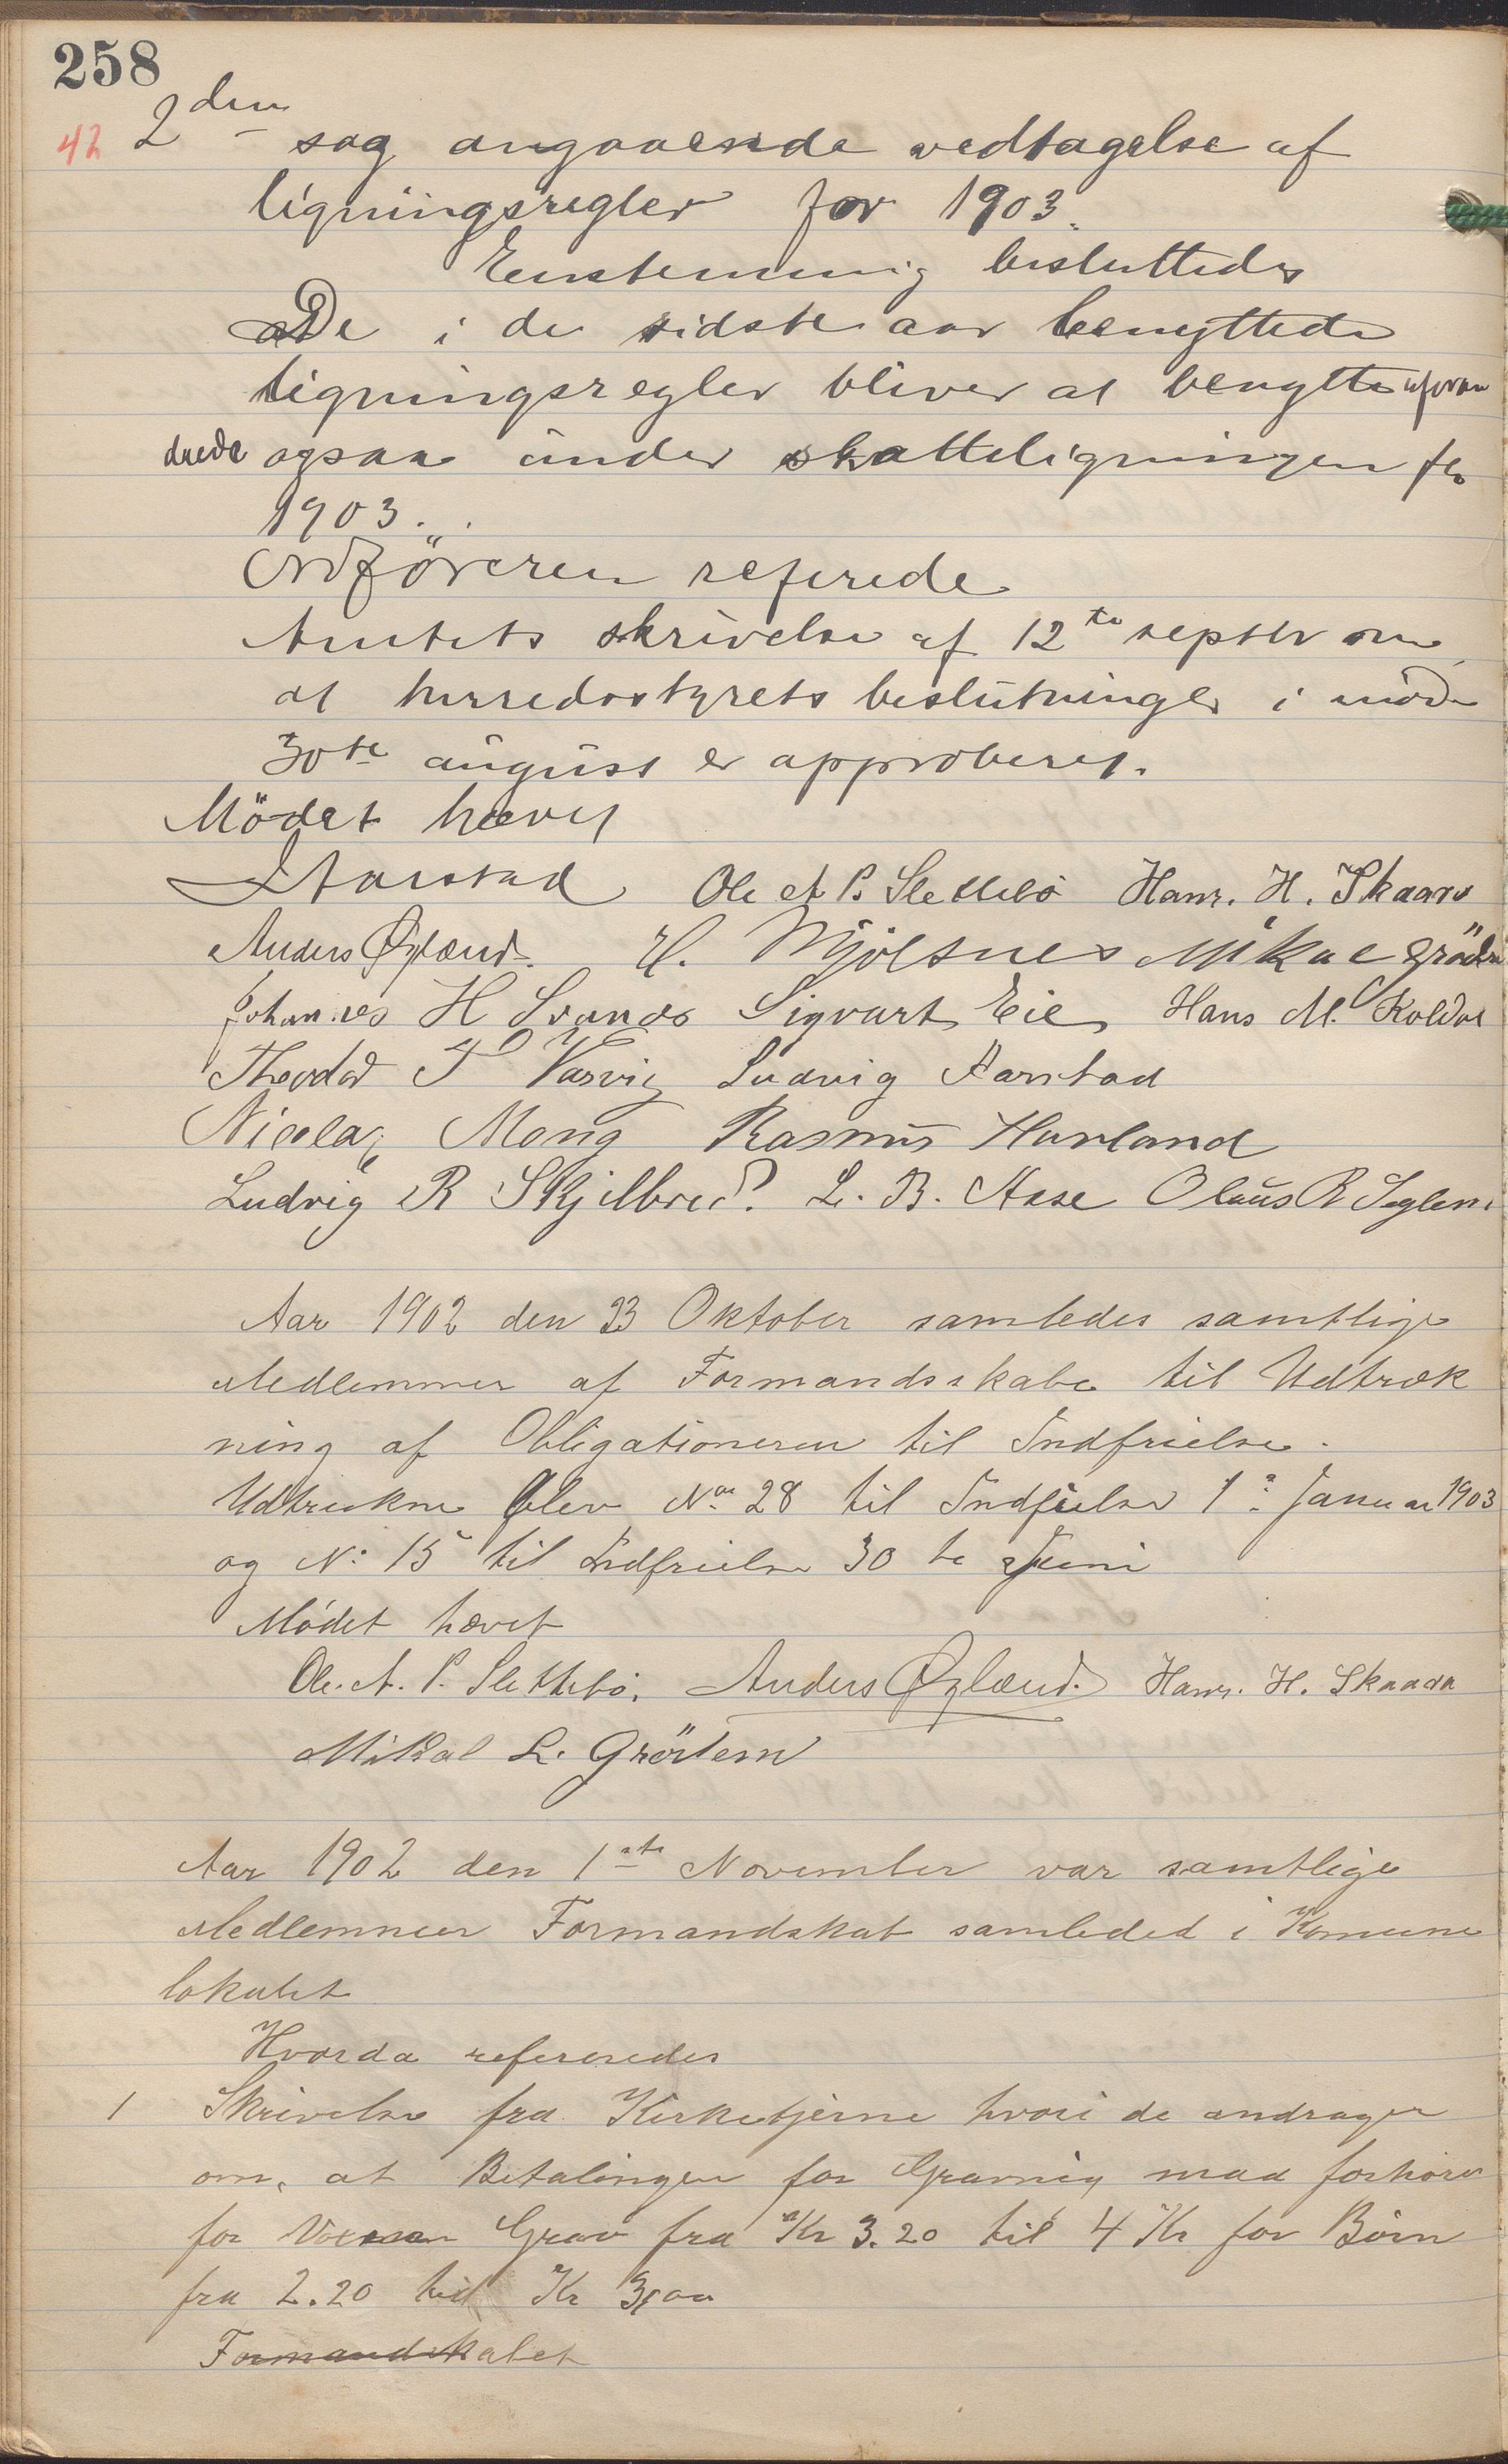 258
42 2den sag angaaende vedtagelse af
ligningsregler for 1903.
Enstemmig besluttedes
De i de sidste aar benyttede
ligningsregler bliver at benytte uforan
drede ogsaa under skatteligningen for
1903.
Ordføreren refererede
Amtets skrivelse af 12te septbr om
at herredsstyrets beslutninger i møde
30te august er approberet.
Mödet hævet
Aarstad Ole A P. Slettebö Hans. H. Skaara
Anders Øglænd. H. Mjølsnes Mikael Grödem
Johannes H Svanes Sigvart Eie Hans M. Koldal
Theodor T Varvig Ludvig Aarstad
Nicolay Mong Rasmus Havland
Ludvig R Skjelbred. L. B. Aase Olaus R Seglem
Aar 1902 den 23 Oktober samledes samtlige
Medlemmer af Formandsskabe til Udtræk
ning af Obligationeren til Indfrielse.
Udtrukne blev No 28 til Indfrielse 1ste Januar 1903
og No 15 til Indfrielse 30 te Juni
Mødet hævet
Ole. A. P. Slettebö. Anders Øglænd. Hans. H. Skaara
Mikal L. Grödem
Aar 1902 den 1ste November var samtlige
Medlemmer Formandskab samleded i Komune
lokalet
Hvorda refereredes
1 Skrivelse fra Kirketjerne hvori de andrager
om, at Betalingen for Gravnig maa forhøies
for Voxsen Grav fra Kr 3.20 til 4 Kr for Børn
fra 2.20 til Kr 3,00
Formandskabet